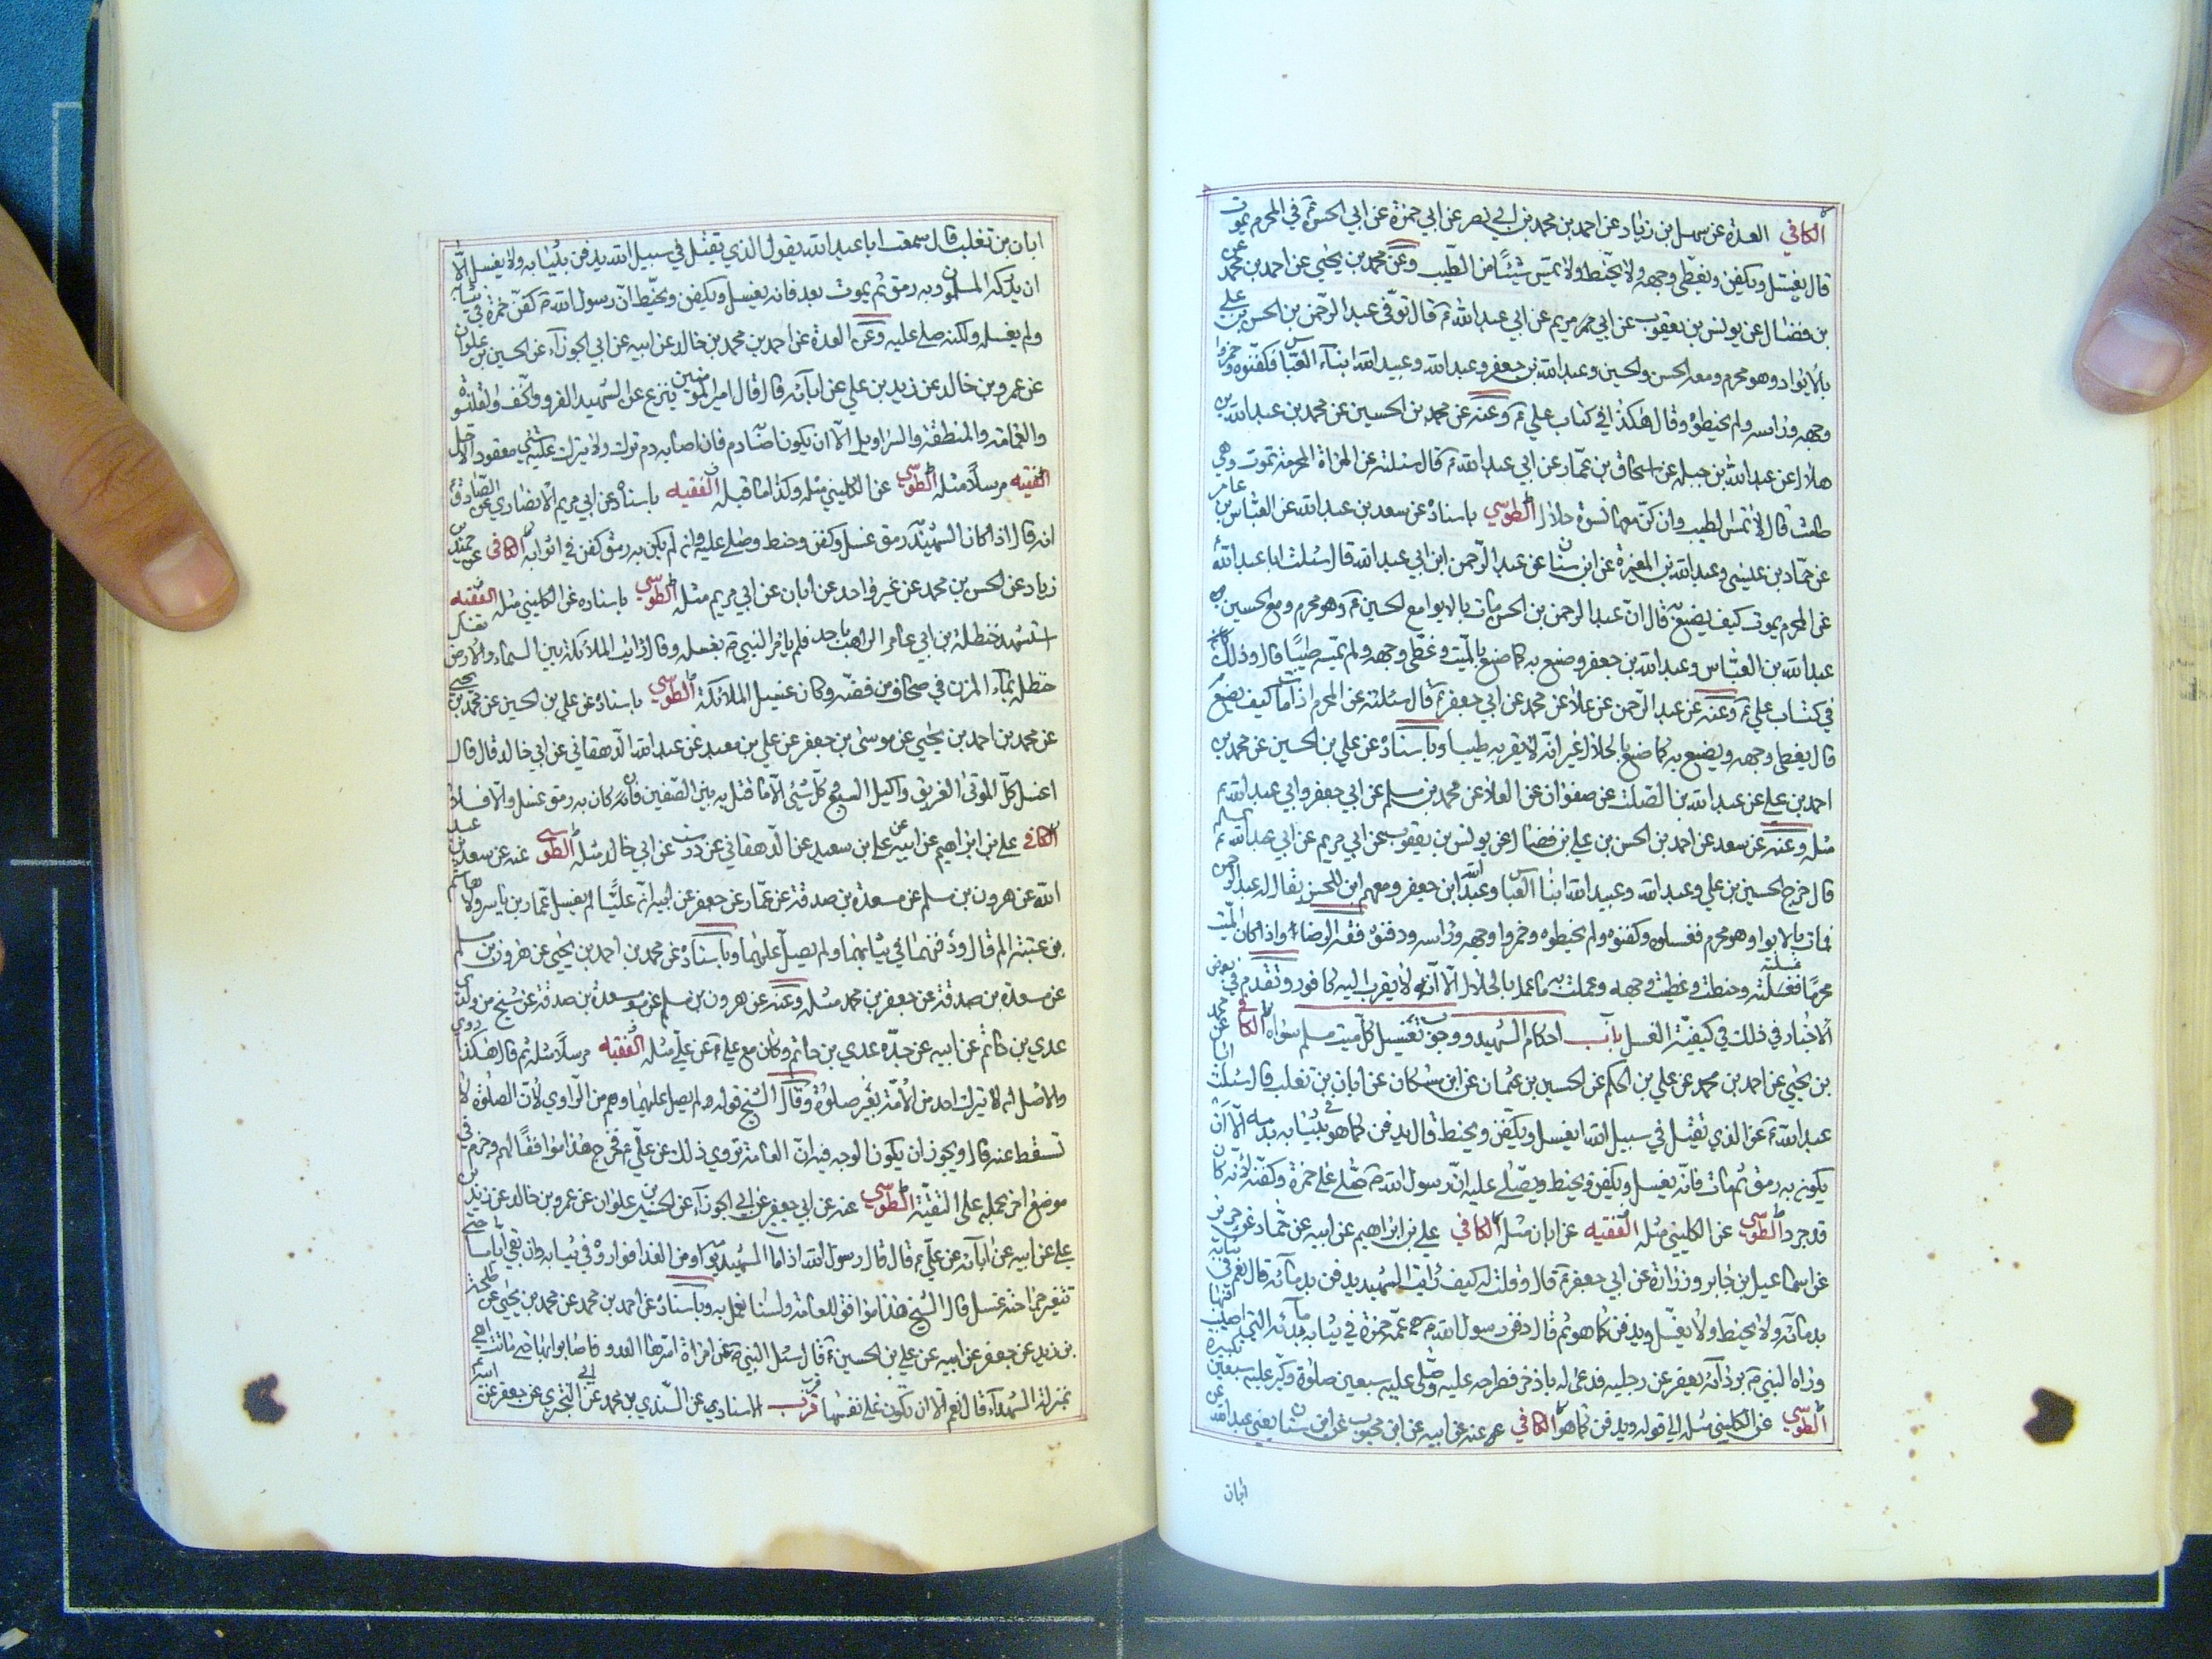 الكافي العدة عن سهل بن زياد عن احمد بن محمد بن ابي نصر عن ابي حمزة عن ابي الحسن ع في المحرم يموت
قال يغسل ويكفن ويغطى وجهه ولا يحنط ولا يمس شيئا من الطيب وعن محمد بن يحيى عن احمد بن محمد عن
بن فضال عن يونس بن يعقوب عن ابي مريم عن ابي عبد الله ع قال توفى عبد الرحمن بن الحسن بن علي
بالابواء وهو محرم ومعه الحسن والحسين وعبد الله بن جعفر وعبد الله وعبيد الله ابناء العباس فكفنوه وخمروا
وجهه وراسه ولم يحنطوه وقال هكذا في كتاب علي ع وعنه عن محمد بن الحسين عن محمد بن عبد الله بن
هلال عن عبد الله بن جبله عن اسحاق بن عمار عن ابي عبد الله ع قال سئلته عن المراة المحرمة تموت وهي
طامث قال لا تمس الطيب وان كن معها نسوة حلال الطوسي باسناده عن سعد بن عبد الله عن العباس بن عامر
عن حماد بن عيسى وعبد الله بن المغيرة عن ابن سنان عن عبد الرحمن ابن ابي عبد الله قال سئلت ابا عبد الله ع
عن المحرم يموت كيف يصنع به قال ان عبد الرحمن بن الحسن مات بالابواء مع الحسين ع وهو محرم ومع الحسين
عبد الله بن العباس وعبد الله بن جعفر وصنع به كما صنع بالميت وغطى وجهه ولم يمسه طيبا قال وذلك كان
في كتاب علي ع وعنه عن عبد الرحمن عن علاء عن محمد عن ابي جعفر ع قال سئلته عن المحرم اذا مات كيف يصنع
قال يغطى وجهه ويصنع به كما صنع بالحلال غير انه لا يقربه طيبا وباسناده عن علي بن الحسين عن محمد بن
احمد بن علي عن عبد الله بن الصلت عن صفوان عن العلاء عن محمد بن مسلم عن ابي جعفر وابي عبد الله ع
مثله وعنه عن سعد عن احمد بن الحسن بن علي بن فضال عن يونس بن يعقوب عن ابي مريم عن ابي عبد الله ع
قال خرج الحسين بن علي وعبد الله وعبيد الله ابنا العباس وعبد الله ابن جعفر ومعهم ابن للحسن يقال له عبد الرحمن
فمات بالابواء وهو محرم فغسلوه وكفنوه ولم يحنطوه وخمروا وجهه وراسه ودفنوه فقه الرضا ع واذا كان الميت
محرما غسلته وحنطت وغطيت وجهه وعملت به ما عمل بالحلال الا انه لا يقرب اليه كافور وتقدم في بعض
الاخبار في ذلك في كيفية الغسل باب احكام الشهيد ووجوب تغسيل كل ميت مسلم سواه الكافي محمد
بن يحيى عن احمد بن محمد عن علي بن الحكم عن الحسين بن عثمان عن ابن مسكان عن ابان بن تغلب قال سئلت ابا
عبد الله ع عن الذي يقتل في سبيل الله ايغسل ويكفن ويحنط قال يدفن كما هو في ثيابه بدمه الا ان
يكون به رمق ثم مات فانه يغسل ويكفن ويحنط ويصلى عليه ان رسول الله ص صلى على حمزة وكفنه لانه كان
قد جرد الطوسي عن الكليني مثله الفقيه عن ابان مثله الكافي علي بن ابراهيم عن ابيه عن حماد عن حريز
عن اسماعيل بن جابر وزرارة عن ابي جعفر ع قال وقلت له كيف رايت الشهيد يدفن بدمائه قال نعم في ثيابه
بدمائه ولا يحنط ولا يغسل ويدفن كما هو ثم قال دفن رسول الله ص عمه حمزة في ثيابه بدمائه التي اصيب فيها
ورداه النبي ص برداء فقصر عن رجليه فدعى له باذخر فطرحه عليه وصلى عليه سبعين صلوة وكبر عليه سبعين تكبيرة
الطوسي عن الكليني مثله الى قوله ويدفن كما هو الكافي عنه عن ابيه عن ابن محبوب عن ابن سنان يعني عبد الله عن
ابان
ابان بن تغلب قال سمعت ابا عبد الله يقول الذي يقتل في سبيل الله يدفن بثيابه ولا يغسل الا
ان يدركه المسلمون وبه رمق ثم يموت بعد فانه يغسل ويكفن ويحنط ان رسول الله ص كفن حمزة في ثيابه
ولم يغسله ولكنه صلى عليه وعن العدة عن احمد بن محمد بن خالد عن ابيه عن ابي الجوزاء عن الحسين بن علوان
عن عمرو بن خالد عن زيد بن علي عن ابائه قال قال امير المومنين ينزع عن الشهيد الفرو والخف والقلنسوة
والعمامة والمنطقة والسراويل الا ان يكون اصابه دم فان اصابه دم ترك ولا يترك عليه شيء معقود الا حل
الفقيه مرسلا مثله الطوسي عن الكليني مثله وكذا ما قبله الفقيه باسناده عن ابي مريم الانصاري عن الصادق ع
انه قال اذا كان الشهيد به رمق غسل وكفن وحنط وصلى عليه وان لم يكن به رمق كفن في اثوابه الكافي عن حميد بن
زياد عن الحسن بن محمد عن غير واحد عن ابان عن ابي مريم مثله الطوسي باسناده عن الكليني مثله الفقيه
استشهد حنظلة بن ابي عامر الراهب باحد فلم يامر النبي ص بغسله وقال رايت الملائكة بين السماء والارض تغسل
حنظلة بماء المزن في صحاف من فضة وكان غسيل الملائكة الطوسي باسناده عن علي بن الحسين عن محمد بن يحيى
عن محمد بن احمد بن يحيى عن موسى بن جعفر عن علي بن معبد عن عبد الله الدهقاني عن ابي خالد قال قال
اغسل كل الموتى الغريق واكيل السبع وكل شئ الا ما قتل به بين الصفين فان كان به رمق غسل والا فلا
الكافي علي بن ابراهيم عن ابيه عن علي بن سعيد عن الدهقاني عن درست عن ابي خالد مثله الطوسي عنه عن سعد بن عبد
الله عن هرون بن مسلم عن مسعدة بن صدقة عن عمار عن جعفر عن ابيه ان عليا لم يغسل عمار بن ياسر ولا هاشم
بن عتبة المرقال ودفنهما في ثيابهما ولم يصل عليهما وباسناده عن محمد بن احمد بن يحيى عن هرون بن مسلم
عن مسعدة بن صدقة عن جعفر بن محمد مثله وعنه عن هرون بن مسلم عن مسعدة بن صدقة عن شيخ من ولد
عدي بن حاتم عن ابيه عن جده عدي بن حاتم وكان مع علي ع عن علي مثله الفقيه مرسلا مثله ثم قال هكذا روي
والاصل انه لا يترك احد من الامة بغير صلوة وقال الشيخ قوله ولم يصل عليهما وهم من الراوي لان الصلوة لا
تسقط عنه قال ويجوز ان يكون الوجه فيه ان العامة تروي ذلك عن علي ع فخرج هذا موافقا لهم وجزم في
موضع اخر بحمله على التقية الطوسي عنه عن ابي جعفر عن ابي الجوزاء عن الحسين بن علوان عن عمرو بن خالد عن زيد بن
علي عن ابيه عن ابائه عن علي ع قال قال رسول الله اذا مات الشهيد من يومه او من الغد فواروه في ثيابه وان بقي اياما حتى
تتغير جراحته غسل قال الشيخ هذا موافق للعامة ولسنا نعمل به وباسناده عن احمد بن محمد عن محمد بن يحيى عن طلحة
بن زيد عن جعفر عن ابيه عن علي بن الحسين ع قال سئل النبي ص عن امراة اسرها العدو فاصابوا بها حتى ماتت اهي
بمنزلة الشهداء قال نعم الا ان تكون اعانت على نفسها قرب الاسناد عن السندي بن محمد عن ابي البختري عن جعفر عن